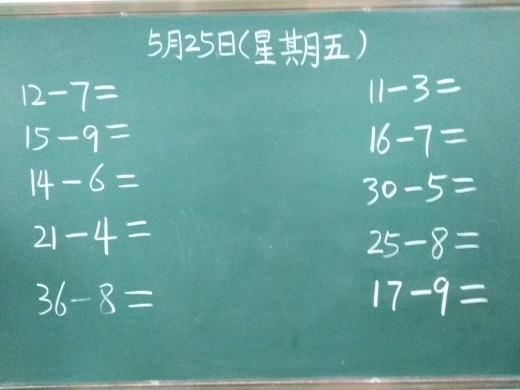 5月25日(星期五)
12-7=
11-3=
15-9=
16-7=
14-6=
30-5=
21-4=
25-8=
36-8=
17-9=